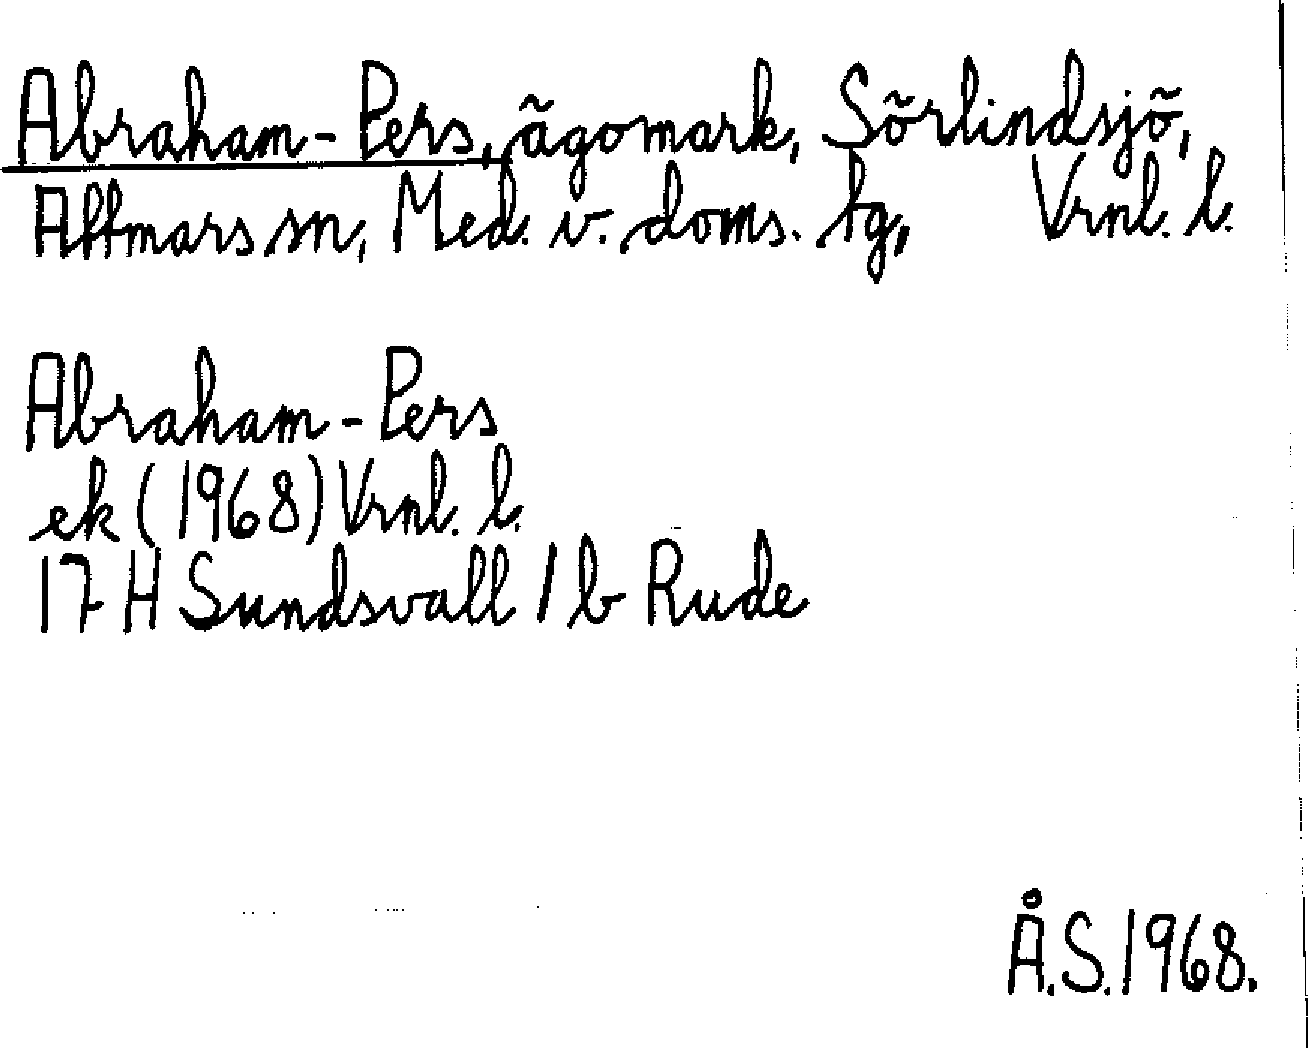 Abraham-Pers, ägomark, Sörlindsjö,
Attmars sn, Med. v. doms. tg, Vrnl. l.
Abraham-Pers
ek (1968) Vrnl. l.
17 H Sundsvall 1 b Rude
Å.S. 1968.